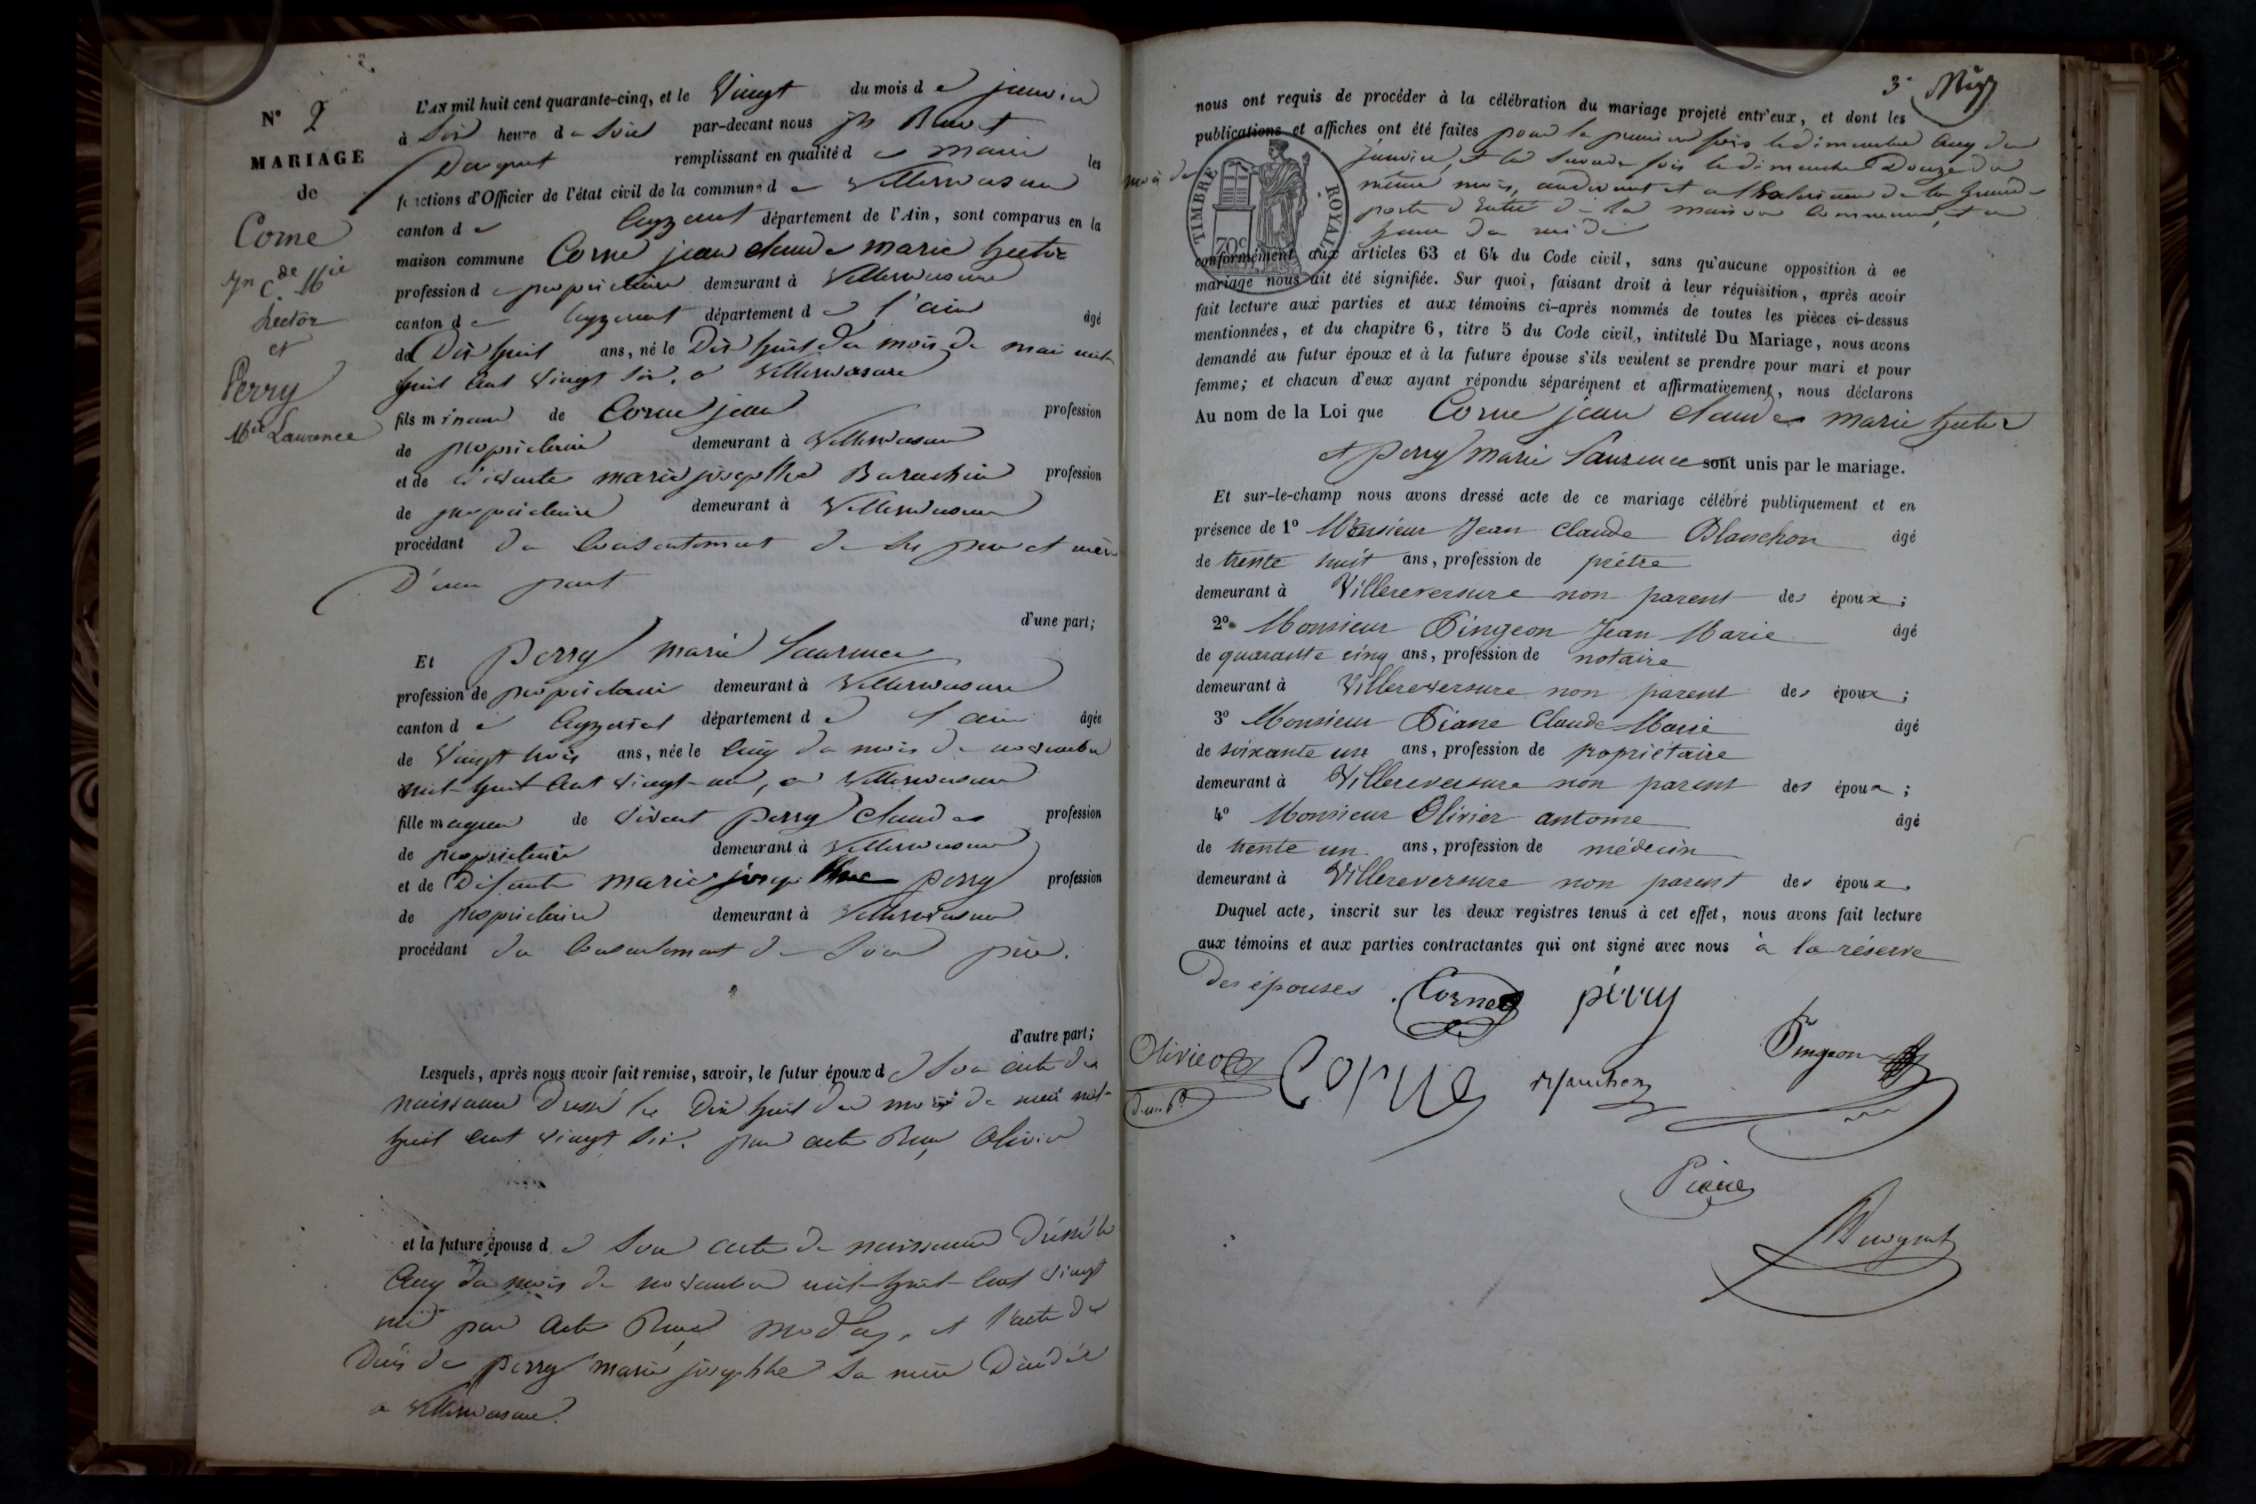 N° 2
MARIAGE
de
Corne
Jn Cde Mie
hector
et
Perry
Mie Laurence
L'AN mil huit cent quarante-cinq, et le Vingt du mois de janvier
à Six heure du Soir par-devant nous
remplissant en qualité de maire les
fonctions d'Officier de l'état civil de la commune de Villereversure
canton de Ceyzeriat département de l'Ain, sont comparus en la
maison commune Corne jean claude marie hector
profession de propriétaire demeurant à Villereversure
canton de Ceyzeriat département de l'ain âgé
de Dix huit ans, né le Dix huit du mois de mai mil
huit cent vingt six, a Villereversure
fils mineur de Corne jean profession
de propriétaire demeurant à Villereversure
et de vivante marie josephte profession
de propriétaire demeurant à Villereversure
procédant du Consentement de ses père et mère
D'une part
d'une part;
Et Perry marie Laurence
profession de propriétaire demeurant à Villereversure
canton de Ceyzeriat département de l'ain âgée
de Vingt trois ans, née le Cinq du mois de novembre
mil huit cent vingt un, a Villereversure
fille majeur de vivant perry claude profession
de propriétaire demeurant à Villereversure
et de Défunte marie josephte perry profession
de propriétaire demeurant à Villereversure
procédant du Consentement de Son père.
d'autre part;
Lesquels, après nous avoir fait remise, savoir, le futur époux de Son acte de
naissance Dressé le Dix huit du mois de mai mil
huit cent vingt six. par acte Reçu Olivier
et la future épouse de Son acte de naissance Dréssé le
Cinq du mois de novembre mil huit cent vingt
un par acte Reçu et l'acte de
Décès de perry marie josephte Sa mère Décédée
a Villereversure.
3e
nous ont requis de procéder à la célébration du mariage projeté entr'eux, et dont les
publications et affiches ont été faites pour la première fois le dimanche Cinq du
mois de janvier, et la Seconde fois le dimanche Douze du
même mois, audevant et a l'Exterieur de la Grande
porte d'Entré de la maison Commune, et a
heure de midi
TIMBRE ROYAL
70c
conformément aux articles 63 et 64 du Code civil, sans qu'aucune opposition à ce
mariage nous ait été signifiée. Sur quoi, faisant droit à leur réquisition, après avoir
fait lecture aux parties et aux témoins ci-après nommés de toutes les pièces ci-dessus
mentionnées, et du chapitre 6, titre 5 du Code civil, intitulé Du Mariage, nous avons
demandé au futur époux et à la future épouse s'ils veulent se prendre pour mari et pour
femme; et chacun d'eux ayant répondu séparément et affirmativement, nous déclarons
Au nom de la Loi que Corne jean claude marie hector
et perry marie Laurence sont unis par le mariage.
Et sur-le-champ nous avons dressé acte de ce mariage célébré publiquement et en
présence de 1° Monsieur Jean Claude Blanchon âgé
de trente huit ans, profession de prétre
demeurant à Villereversure non parent des époux;
2° Monsieur Pingeon Jean Marie âgé
de quarante cinq ans, profession de notaire
demeurant à Villereversure non parent des époux;
3° Monsieur Piane Claude Marie âgé
de soixante un ans, profession de propriétaire
demeurant à Villereversure non parent des époux;
4° Monsieur Olivier antoine âgé
de trente un ans, profession de médecin
demeurant à Villereversure non parent des époux.
Duquel acte, inscrit sur les deux registres tenus à cet effet, nous avons fait lecture
aux témoins et aux parties contractantes qui ont signé avec nous à la réserve
des épouses Corne pérry
Olivier Corne Blanchon Pingeon
Piane